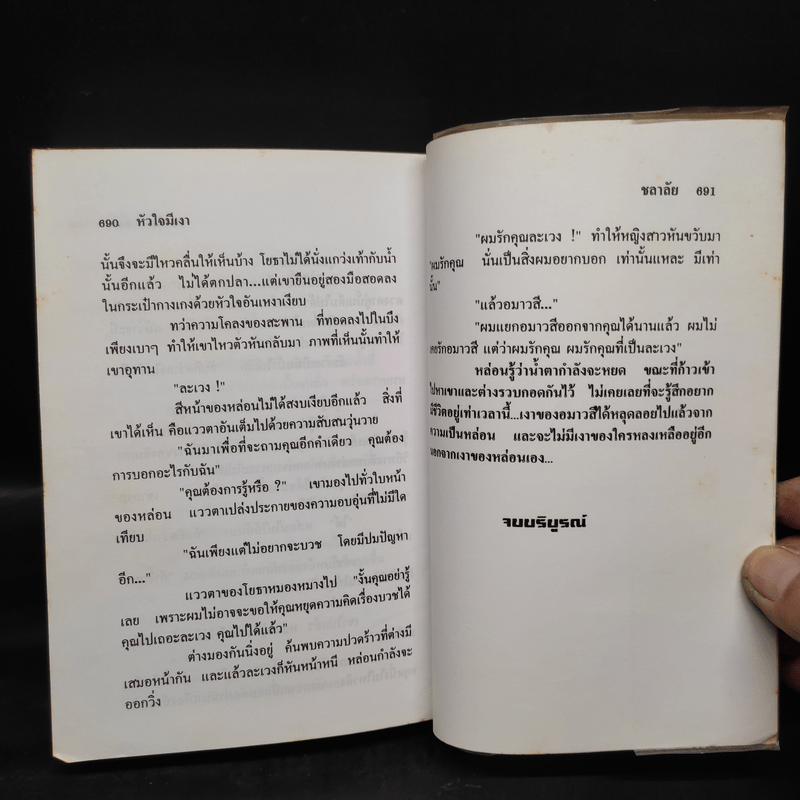 690 หัวใจมีเงา
นั้นจึงจะมีไหวคลื่นให้เห็นบ้าง โยธาไม่ได้นั่งแกว่งเท้ากับน้ำ
นั้นอีกแล้ว ไม่ได้ตกปลา...แต่เขายืนอยู่สองมือสอดลง
ในกระเป๋ากางเกงด้วยหัวใจอันเหงาเงียบ
ทว่าความโคลงของสะพาน ที่ทอดลงไปในบึง
เพียงเบาๆ ทำให้เขาไหวตัวหันกลับมา ภาพที่เห็นนั้นทำให้
เขาอุทาน
"ละเวง !"
สีหน้าของหล่อนไม่ได้สงบเงียบอีกแล้ว สิ่งที่
เขาได้เห็น คือแววตาอันเต็มไปด้วยความสับสนวุ่นวาย
"ฉันมาเพื่อที่จะถามคุณอีกคำเดียว คุณต้อง
การบอกอะไรกับฉัน"
"คุณต้องการรู้หรือ ?" เขามองไปทั่วใบหน้า
ของหล่อน แววตาเปล่งประกายของความอบอุ่นที่ไม่มีใด
เทียบ
"ฉันเพียงแต่ไม่อยากจะบวช โดยมีปมปัญหา
อีก..."
แววตาของโยธาหมองหมางไป "งั้นคุณอย่ารู้
เลย เพราะผมไม่อาจจะขอให้คุณหยุดความคิดเรื่องบวชได้
คุณไปเถอะละเวง คุณไปได้แล้ว"
ต่างมองกันนิ่งอยู่ ค้นพบความปวดร้าวที่ต่างมี
เสมอหน้ากัน และแล้วละเวงก็หันหน้าหนี หล่อนกำลังจะ
ออกวิ่ง
ชลาลัย 691
"ผมรักคุณละเวง !" ทำให้หญิงสาวหันขวับมา
"ผมรักคุณ นั่นเป็นสิ่งผมอยากบอก เท่านั้นแหละ มีเท่า
นั้น"
"แล้วอมาวสี..."
"ผมแยกอมาวสีออกจากคุณได้นานแล้ว ผมไม่
เคยรักอมาวสี แต่ว่าผมรักคุณ ผมรักคุณที่เป็นละเวง"
หล่อนรู้ว่าน้ำตากำลังจะหยด ขณะที่ก้าวเข้า
ไปหาเขาและต่างรวบกอดกันไว้ ไม่เคยเลยที่จะรู้สึกอยาก
มีชีวิตอยู่เท่าเวลานี้...เงาของอมาวสีได้หลุดลอยไปแล้วจาก
ความเป็นหล่อน และจะไม่มีเงาของใครหลงเหลืออยู่อีก
นอกจากเงาของหล่อนเอง...
จบบริบูรณ์